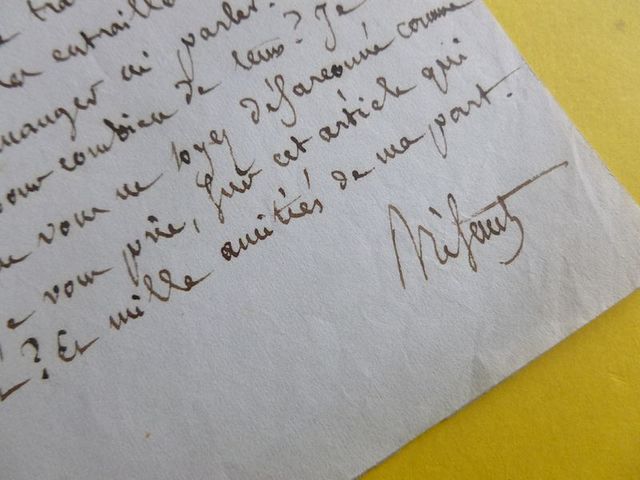 tra
les entrailles
manger ni parler.
pour combien de tems? Je
vous ne soyez désarçonné comme
je vous prie, sur cet article qui
? Et mille amitiés de ma part.